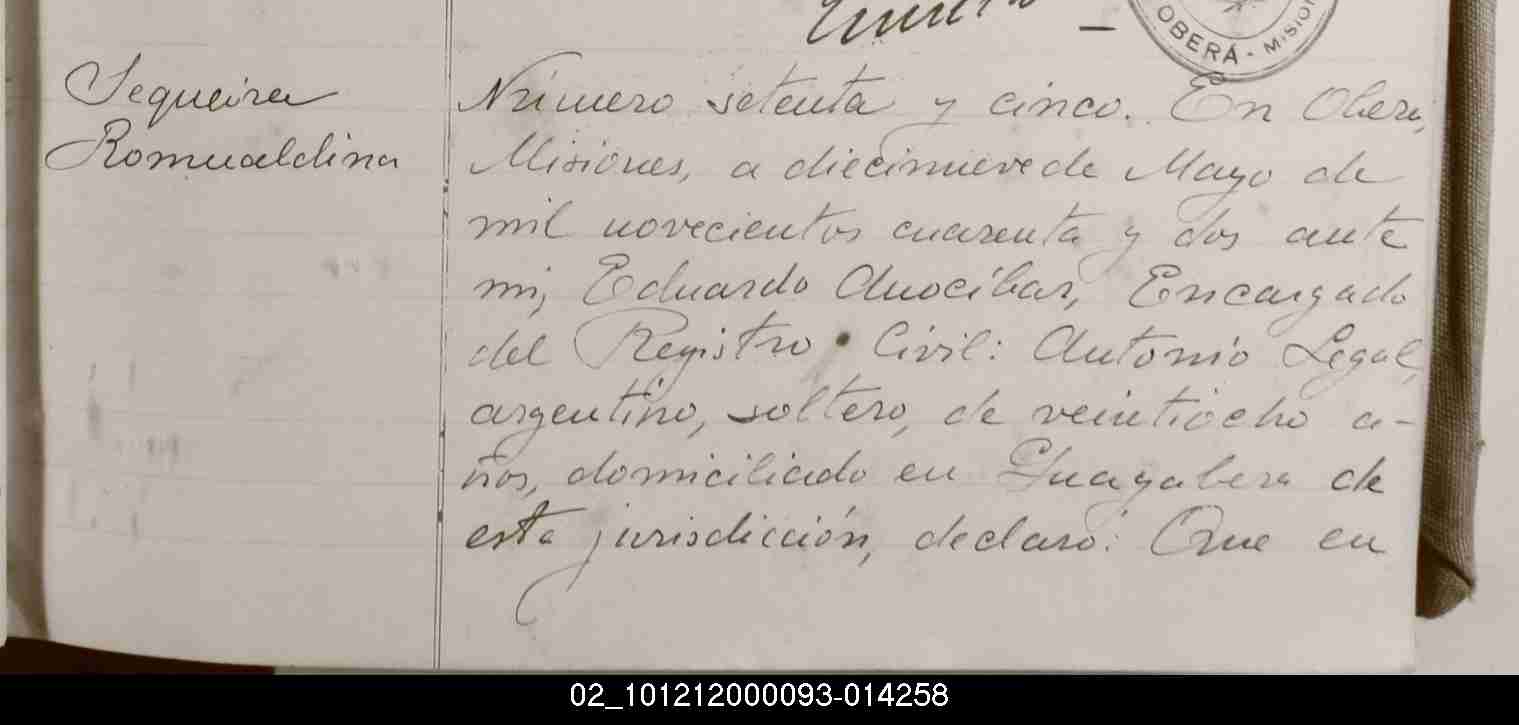 OBERÁ - MISION
Sequeira
Romualdina
Número setenta y cinco. En Oberá,
Misiones, a diecinueve de Mayo de
mil novecientos cuarenta y dos ante
mi, Eduardo Anocíbar, Encargado
del Registro Civil: Antonio Legal,
argentino, soltero, de veintiocho a-
ños, domiciliado en Guayabera de
esta jurisdicción, declaró: Que en
02_101212000093-014258